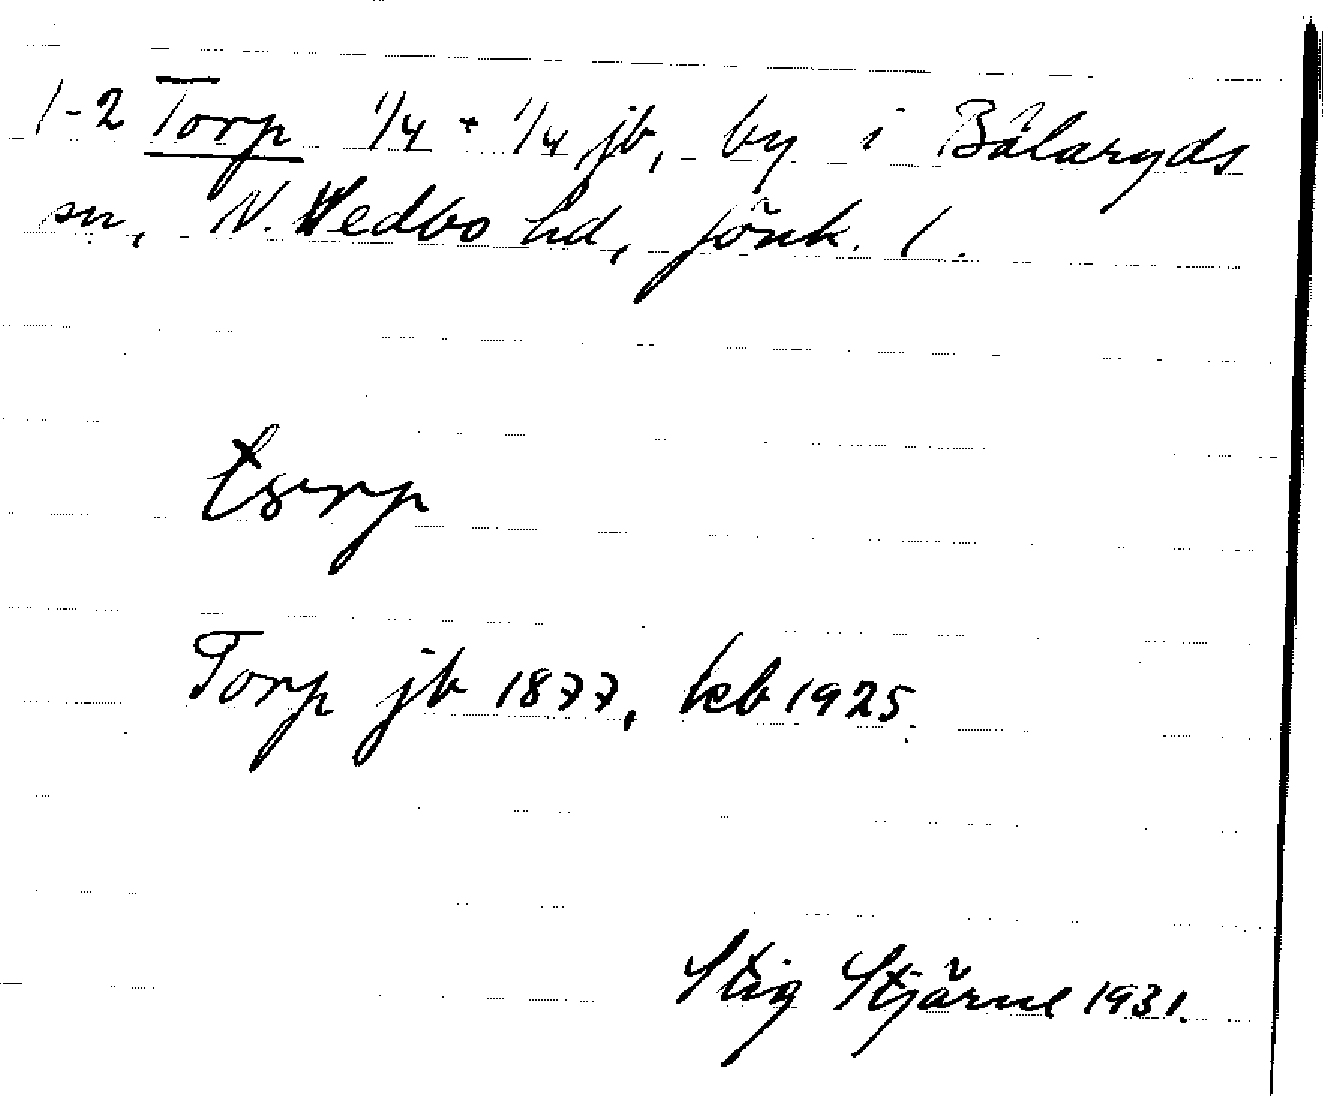 1-2 Torp 1/4 + 1/4 jb, by i Bälaryds
sn, N. Vedbo hd, Jönk. l.
Torp jb 1877, keb 1925.
Stig Stjärne 1931.